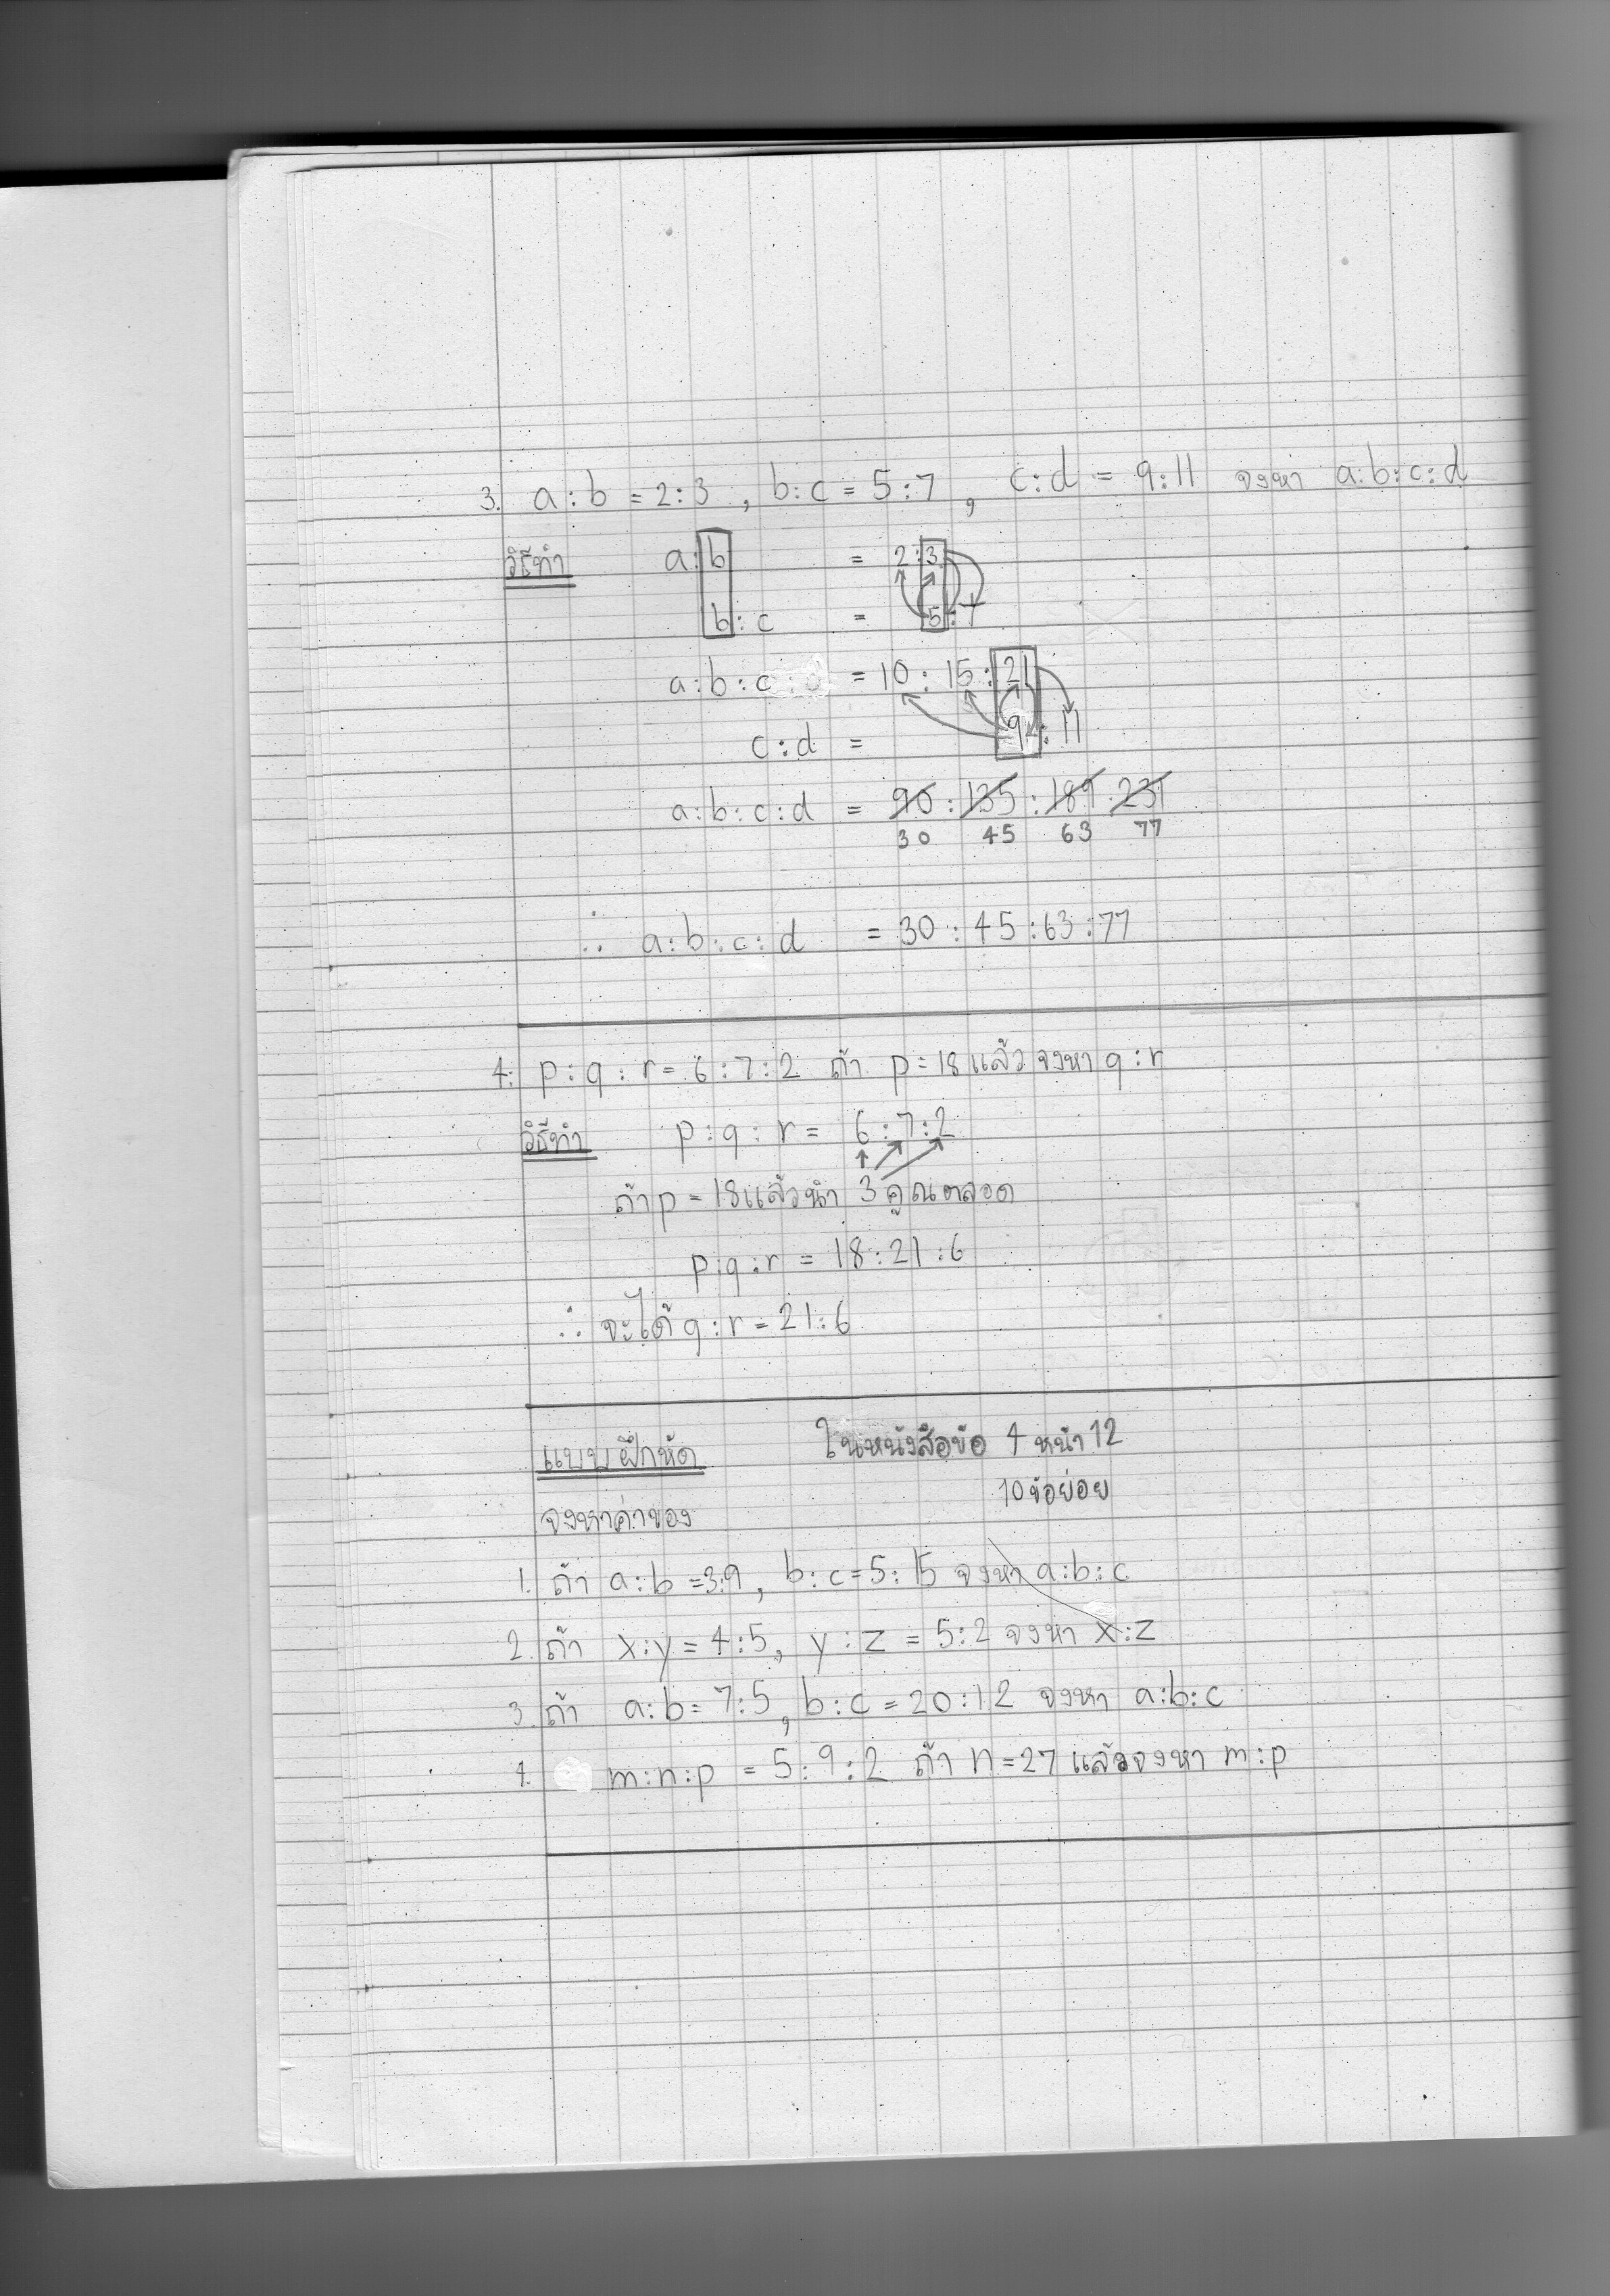 3. a:b = 2:3 , b:c = 5:7 , c:d = 9:11 จงหา a:b:c:d
วิธีทำ a:b = 2:3
b:c = 5:7
a:b:c = 10:15:21
c:d = 9:11
a:b:c:d = 90:135:189:231
30 45 63 77
∴ a:b:c:d = 30:45:63:77
4. p:q:r = 6:7:2 ถ้า p=18 แล้ว จงหา q:r
วิธีทำ p:q:r = 6:7:2
ถ้า p = 18 แล้วนำ 3 คูณตลอด
p:q:r = 18:21:6
∴ จะได้ q:r = 21:6
แบบฝึกหัด ในหนังสือข้อ 4 หน้า 12
10 ข้อย่อย
จงหาค่าของ
1. ถ้า a:b = 3:9, b:c = 5:15 จงหา a:b:c
2. ถ้า x:y = 4:5, y:z = 5:2 จงหา x:z
3. ถ้า a:b = 7:5, b:c = 20:12 จงหา a:b:c
4. m:n:p = 5:9:2 ถ้า n=27 แล้วจงหา m:p